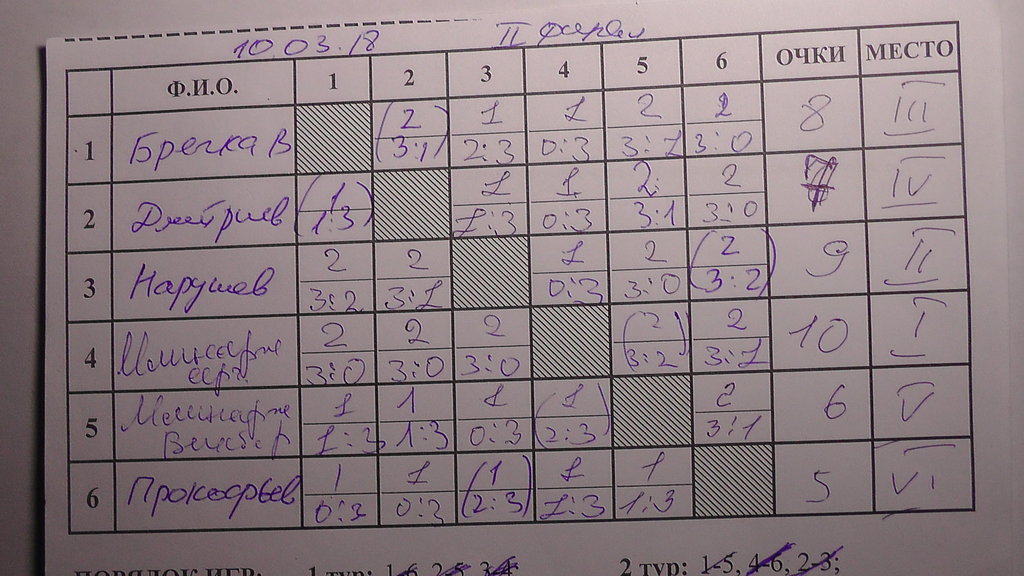 10.03.18 II финал
Ф.И.О. 1 2 3 4 5 6 ОЧКИ МЕСТО
1 Брегка В (2 3:1) 1 2:3 1 0:3 2 3:1 2 3:0 8 III
2 Дмитриев (1 1:3) 1 1:3 1 0:3 2 3:1 2 3:0 7 IV
3 Нарушев 2 3:2 2 3:1 1 0:3 2 3:0 (2 3:2) 9 II
4 2 3:0 2 3:0 2 3:0 (2 3:2) 2 3:1 10 I
5 1 1:3 1 1:3 1 0:3 (1 2:3) 2 3:1 6 V
6 Прокофьев 1 0:3 1 0:3 (1 2:3) 1 1:3 1 1:3 5 VI
ПОРЯДОК ИГР: 1 тур: 1-6, 2-5, 3-4 2 тур: 1-5, 4-6, 2-3;